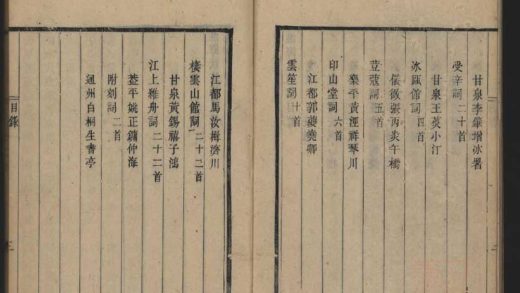 甘泉李肇增冰署
受辛詞二十首
甘泉王菼小汀
冰甌館詞四首
儀徵張丙炎午橋
荳蔻詞五首
樂平黃涇祥琴川
印山堂詞六首
江都郭夔堯卿
雲笙詞十首
江都馬汝楫濟川
棲雲山館詞二十二首
甘泉黃錫禧子鴻
江上維舟詞二十二首
蓋平姚正鏞仲海
附刻詞二首
通州白桐生書亭
目錄